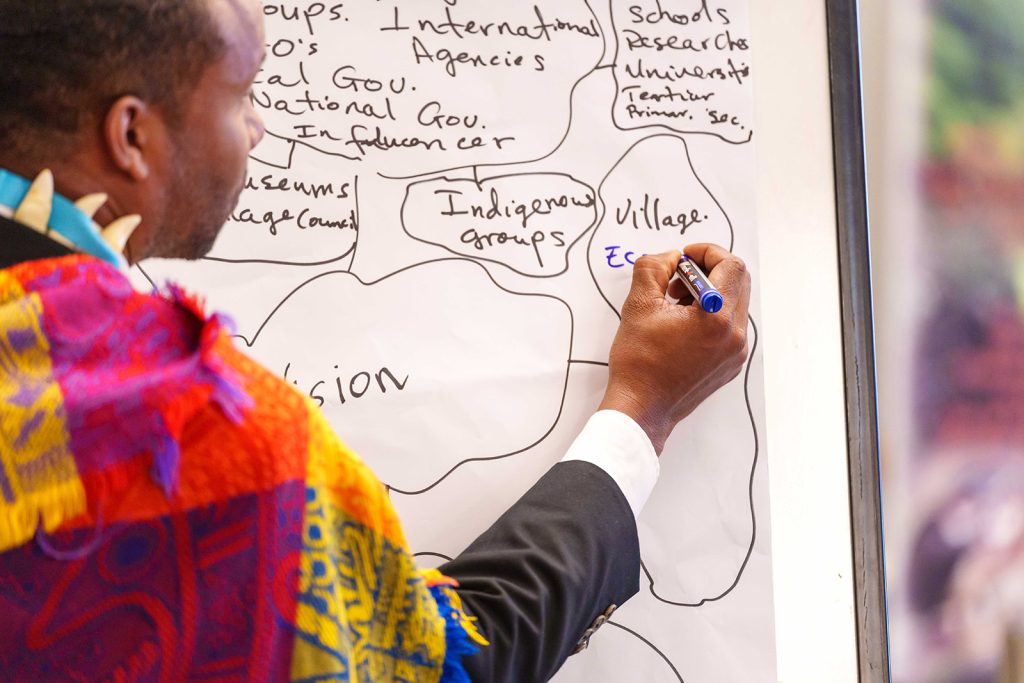 oups.
International
Agencies
o's
al Gou.
National Gou.
Infuluencer
schools
Researches
Universiti
Tertiar
Primar. sec.
useums
lageCouncil
Indigenous
groups
Village.
Ec
ision